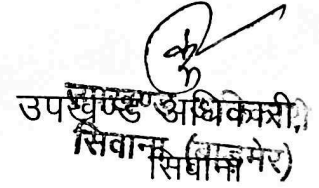 उपखण्ड अधिकारी,
सिवाना (बाड़मेर)
सिवाना